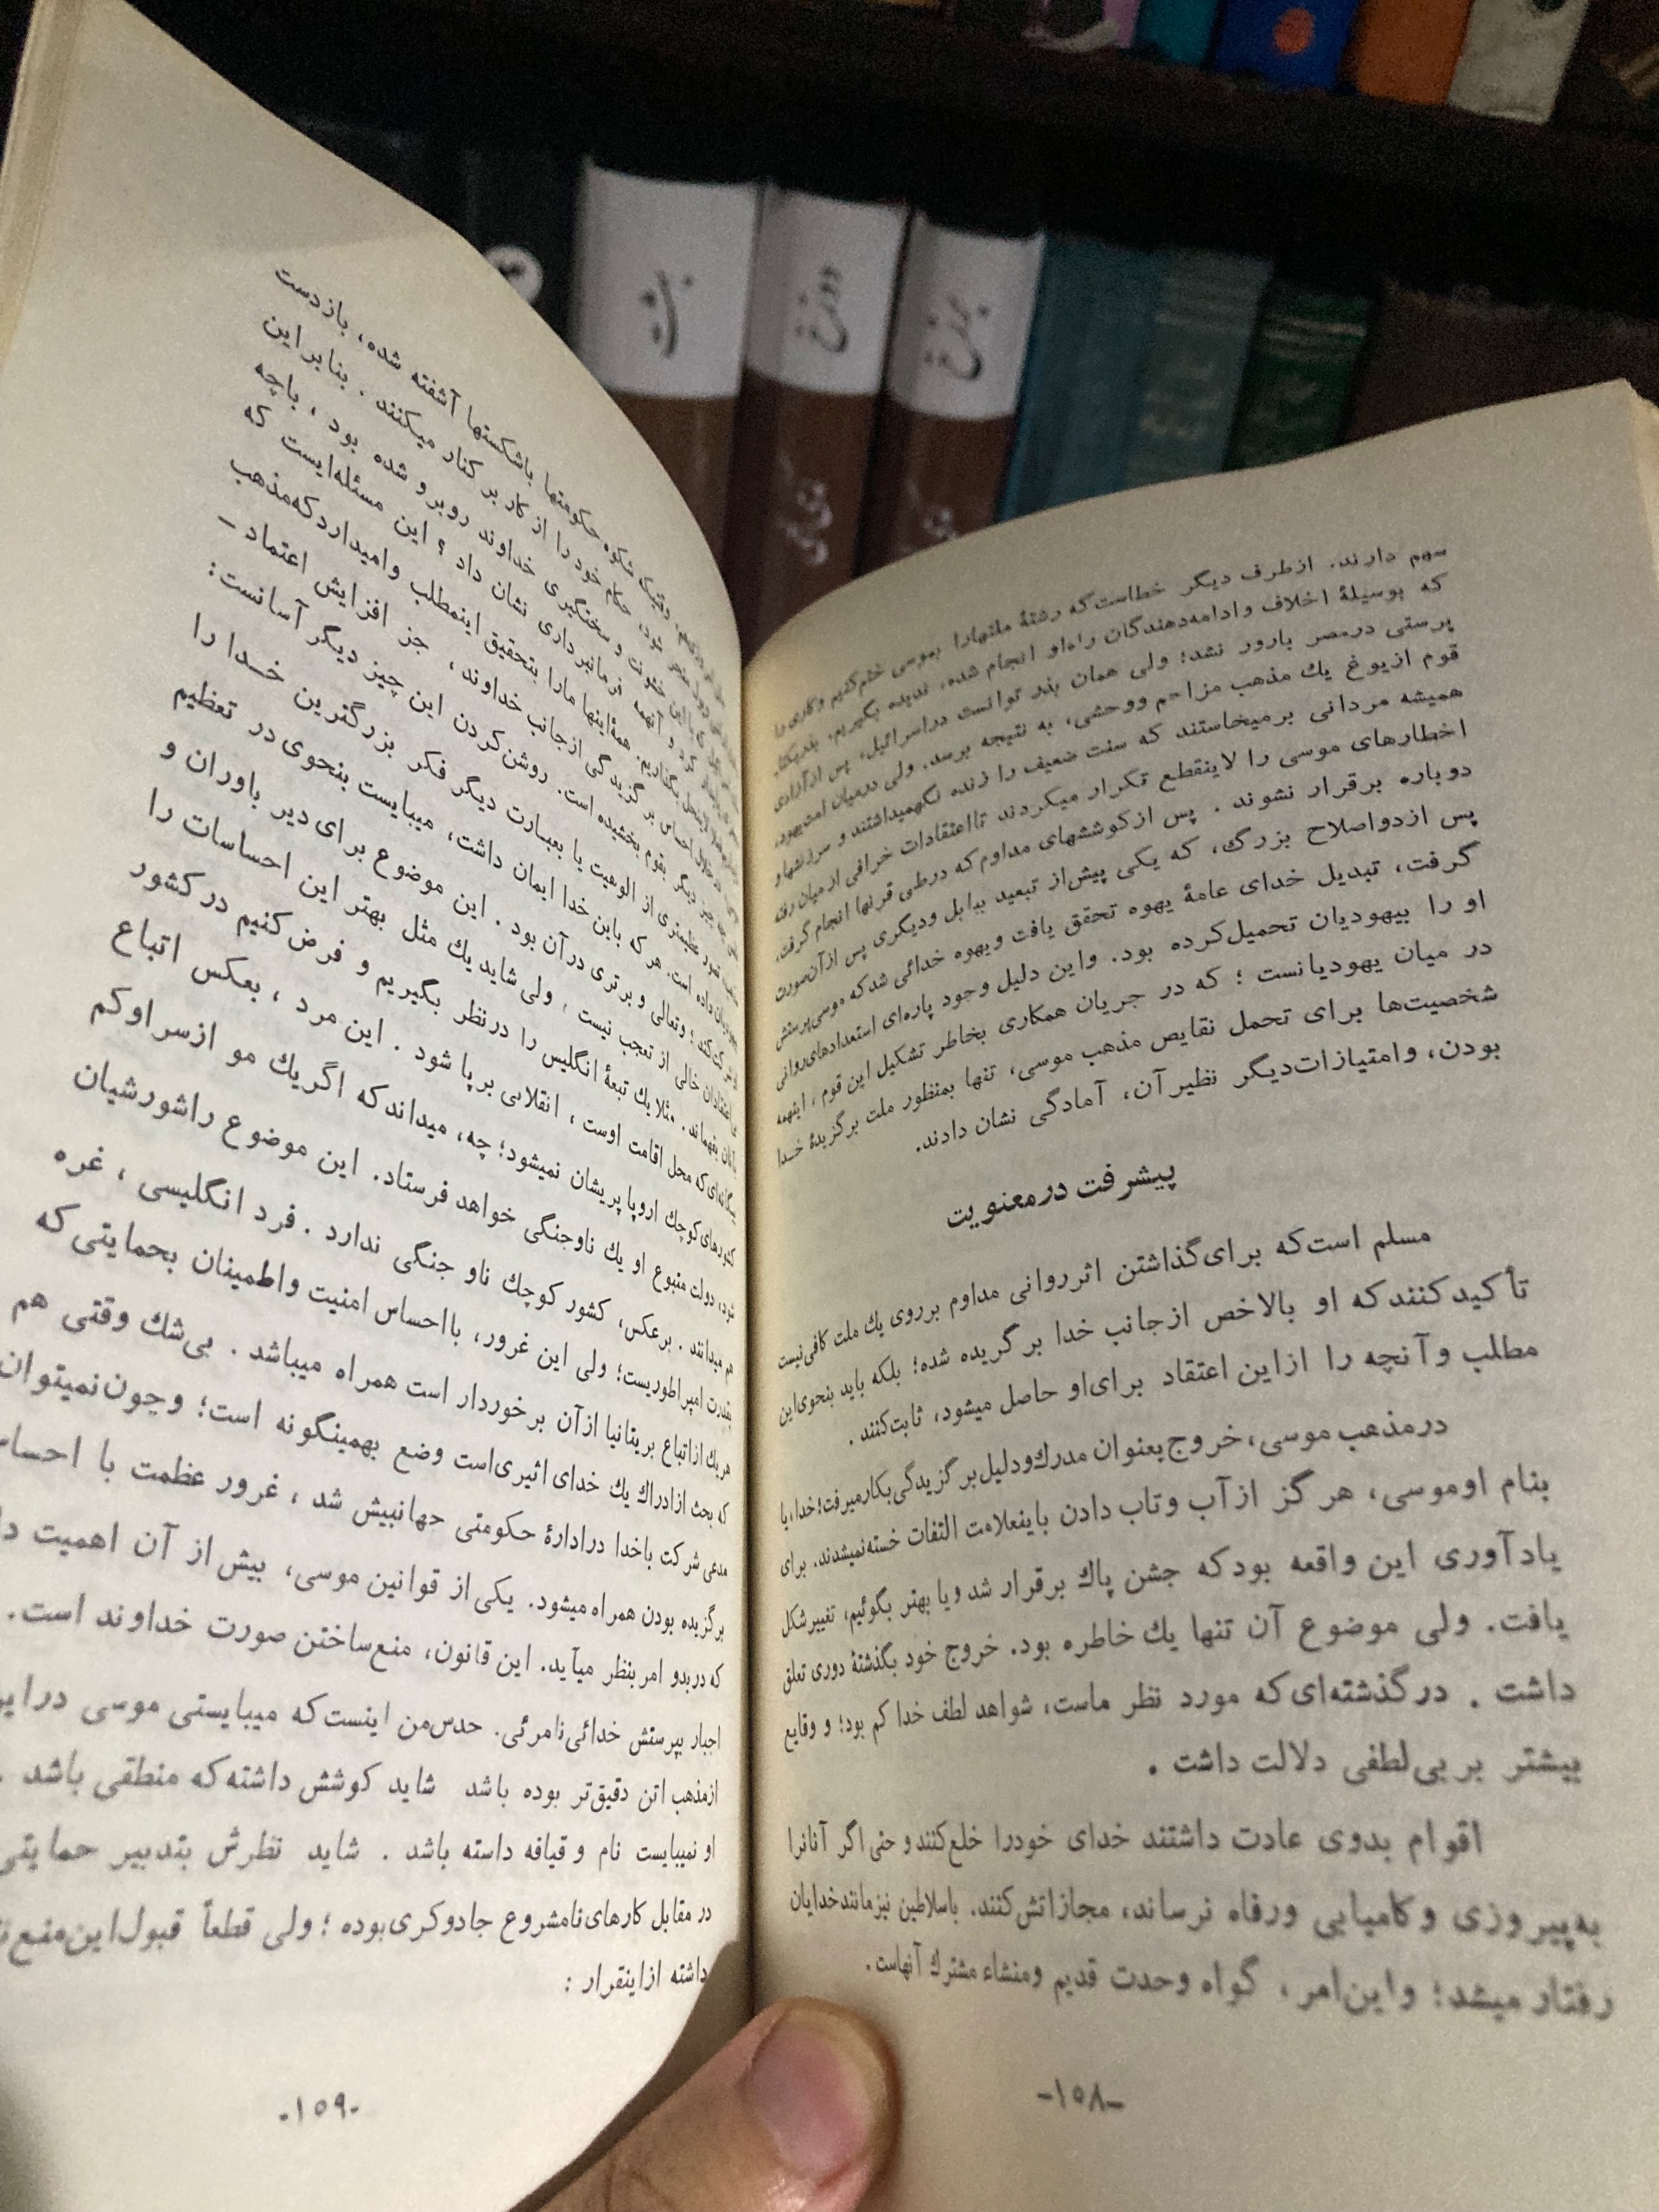 برزخ
سهم دارند. ازطرف دیگر خطاست که رشتهٔ ملتهارا بموسی ختم کنیم و کاری را
که بوسیلهٔ اخلاف وادامه‌دهندگان راه‌او انجام شده، ندیده بگیریم. بذر یکتا
پرستی درمصر بارور نشد؛ ولی همان بذر توانست دراسرائیل، پس ازآزادی
قوم ازیوغ یك مذهب مزاحم ووحشی، به نتیجه برسد. ولی درمیان امت یهود،
همیشه مردانی برمیخاستند که سنت ضعیف را زنده نگهمیداشتند و سرزنشها و
اخطارهای موسی را لاینقطع تکرار میکردند تااعتقادات خرافی ازمیان رفته
دوباره برقرار نشوند . پس ازکوششهای مداوم که درطی قرنها انجام گرفت،
پس ازدواصلاح بزرگ، که یکی پیش‌از تبعید ببابل ودیگری پس ازآن‌صورت
گرفت، تبدیل خدای عامهٔ یهوه تحقق یافت ویهوه خدائی شدکه موسی‌پرستش
او را بیهودیان تحمیل‌کرده بود. واین دلیل وجود پاره‌ای استعدادهای‌روانی
در میان یهودیانست ؛ که در جریان همکاری بخاطر تشکیل این قوم، اینهمه
شخصیت‌ها برای تحمل نقایص مذهب موسی، تنها بمنظور ملت برگزیدهٔ خدا
بودن، وامتیازات‌دیگر نظیرآن، آمادگی نشان دادند.
پیشرفت درمعنویت
مسلم است‌که برای‌گذاشتن اثرروانی مداوم برروی یك ملت کافی‌نیست
تأکیدکنندکه او بالاخص ازجانب خدا برگریده شده؛ بلکه باید بنحوی‌این
مطلب وآنچه را ازاین اعتقاد برای‌او حاصل میشود، ثابت‌کنند .
درمذهب موسی،خروج‌بعنوان مدرك‌ودلیل‌برگزیدگی‌بکارمیرفت؛خدا،یا
بنام اوموسی، هرگز ازآب وتاب دادن باینعلامت التفات خسته‌نمیشدند. برای
یادآوری این واقعه بودکه جشن پاك برقرار شد ویا بهتر بگوئیم، تغییرشکل
یافت. ولی موضوع آن تنها یك خاطره بود. خروج خود بگذشتهٔ دوری تعلق
داشت . درگذشته‌ای‌که مورد نظر ماست، شواهد لطف خدا کم بود؛ و وقایع
بیشتر بربی‌لطفی دلالت داشت .
اقوام بدوی عادت داشتند خدای خودرا خلع‌کنند و حتی اگر آنانرا
به‌پیروزی وکامیابی ورفاه نرساند، مجازاتش‌کنند. باسلاطین نیزمانندخدایان
رفتار میشد؛ واین‌امر، گواه وحدت قدیم ومنشاء مشترك آنهاست.
-۱۵۸-
شکوه حکومتها باشکستها آشفته شده، بازدست
حکام خود را از کار بر کنار میکنند . بنابراین
خشونت و سختگیری خداوند روبرو شده بود ، باچه
فرمانبرداری نشان داد ؟ این مسئله‌ایست که
بگذاریم. همهٔ اینها مارا بتحقیق اینمطلب وامیداردکه‌مذهب
احساس برگزیدگی ازجانب خداوند، جز افزایش اعتماد –
بقوم بخشیده است. روشن‌کردن این چیز دیگر آسانست:
از الوهیت یا بعبارت دیگر فکر بزرگترین خدا را
داده است. هرکه باین خدا ایمان داشت، میبایست بنحوی در تعظیم
وتعالی و برتری درآن بود . این موضوع برای دیر باوران و
خالی از تعجب نیست ، ولی شاید یك مثل بهتر این احساسات را
بفهماند. مثلا یك تبعهٔ انگلیس را درنظر بگیریم و فرض کنیم درکشور
که محل اقامت اوست ، انقلابی برپا شود . این مرد ، بعکس اتباع
کشورهای‌کوچك اروپا پریشان نمیشود؛ چه، میداندکه اگریك مو ازسر اوکم
شود، دولت متبوع او یك ناوجنگی خواهد فرستاد. این موضوع راشورشیان
هم میدانند . برعکس، کشور کوچك ناو جنگی ندارد . فرد انگلیسی ، غره
بقدرت امپراطوریست؛ ولی این غرور، بااحساس امنیت واطمینان بحمایتی‌که
هریك ازاتباع بریتانیا ازآن برخوردار است همراه میباشد . بی‌شك وقتی هم
که بحث ازادراك یك خدای اثیری‌است وضع بهمینگونه است؛ وچون‌نمیتوان
مدعی شرکت باخدا درادارهٔ حکومتی جهانبیش شد ، غرور عظمت با
برگزیده بودن همراه میشود. یکی از قوانین موسی، بیش از آن اهمیت
که دربدو امر بنظر میآید. این قانون، منع‌ساختن صورت خداوند است.
اجبار بپرستش خدائی‌نامرئی. حدس‌من اینست‌که میبایستی موسی
ازمذهب اتن دقیق‌تر بوده باشد شاید کوشش داشته‌که منطقی باشد .
او نمیبایست نام و قیافه داسته باشد . شاید نظرش بتدبیر حمایتی
در مقابل کارهای‌نامشروع جادوکری‌بوده ؛ ولی قطعاً قبول‌این‌منع
داشته ازاینقرار :
-۱۵۹-